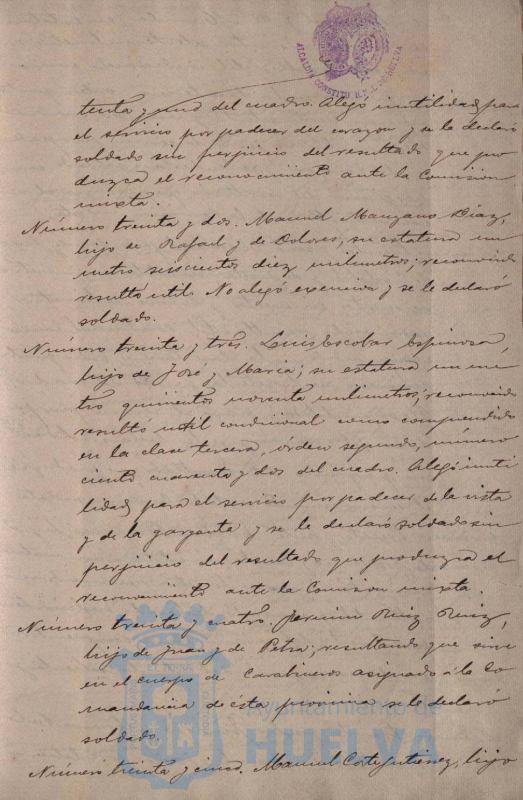 ALCALDIA CONSTITU HUELVA
tenta y uno del cuadro. Alegó inutilidad para
el servicio por padecer del corazon y se le declaró
soldado sin perjuicio del resultado que pro
duzca el reconocimiento ante la Comision
mixta.
Número treinta y dos. Manuel Manzano Diaz,
hijo de Rafael y de Dolores, su estatura un
metro seiscientos diez milimetros; reconocido
resultó util. No alegó exencion y se le declaró
soldado.
Número treinta y tres. Luis Escobar Espinosa,
hijo de José y Maria; su estatura un me
tro quinientos noventa milimetros; reconocido
resultó util condicional como comprendido
en la clase tercera, órden segundo, número
ciento cuarenta y dos del cuadro. Alegó inuti
lidad para el servicio por padecer de la vista
y de la garganta y se le declaró soldado sin
perjuicio del resultado que produzca el
reconocimiento ante la Comision mixta.
Número treinta y cuatro. Ruiz Ruiz,
hijo de Juan y de Petra; resultando que sirve
en el cuerpo de Carabineros asignado á la Co
mandancia de ésta provincia se le declaró
soldado.
Ayuntamiento de
HUELVA
Número treinta y cinco. Manuel Corte Gutierrez, hijo